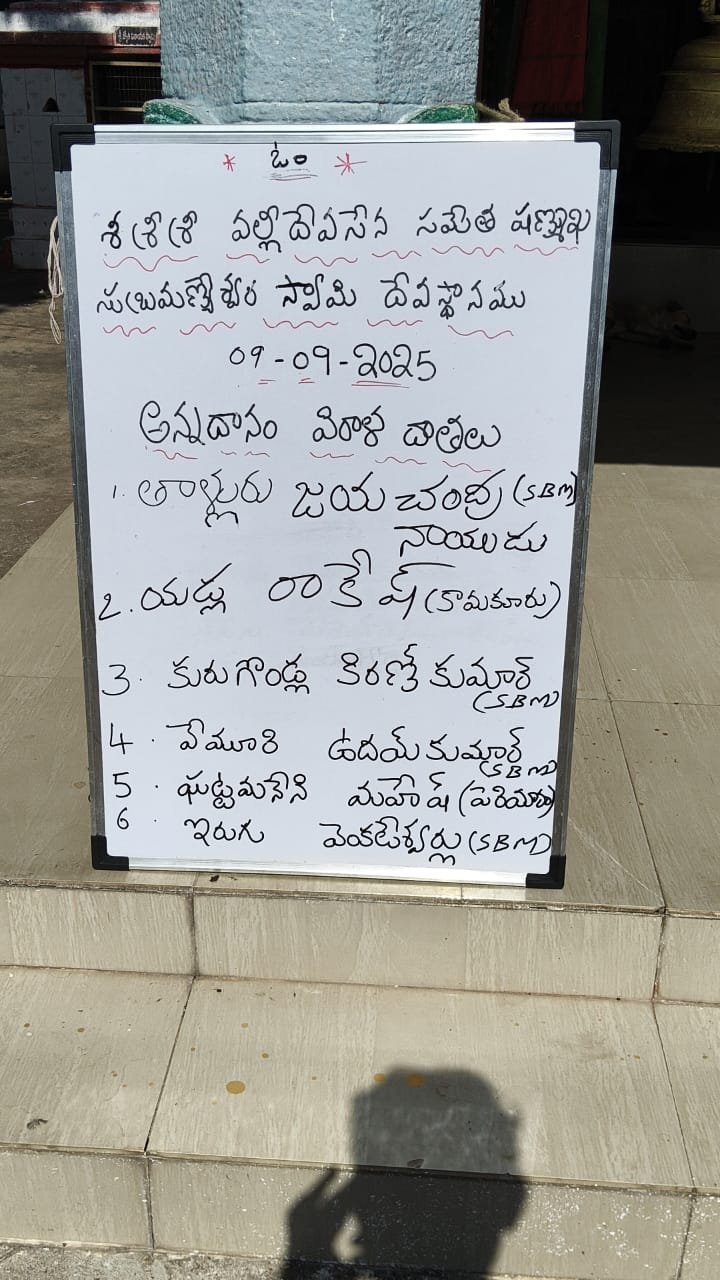 * ఓం *
శ్రీ శ్రీ శ్రీ వల్లీదేవసేన సమేత షణ్ముఖ
సుబ్రమణ్యేశ్వర స్వామి దేవస్థానము
09-09-2025
అన్నదానం విరాళ దాతలు
1. తాళ్లూరు జయ చంద్ర (SBM)
నాయుడు
2. యడ్ల రాకేష్ (కామకూరు)
3. కురుగొండ్ల కిరణ్ కుమార్
(SBM)
4. వేమూరి ఉదయ్ కుమార్
(SBM)
5. ఘట్టమనేని మహేష్
6. ఇరుగు వెంకటేశ్వర్లు (SBM)